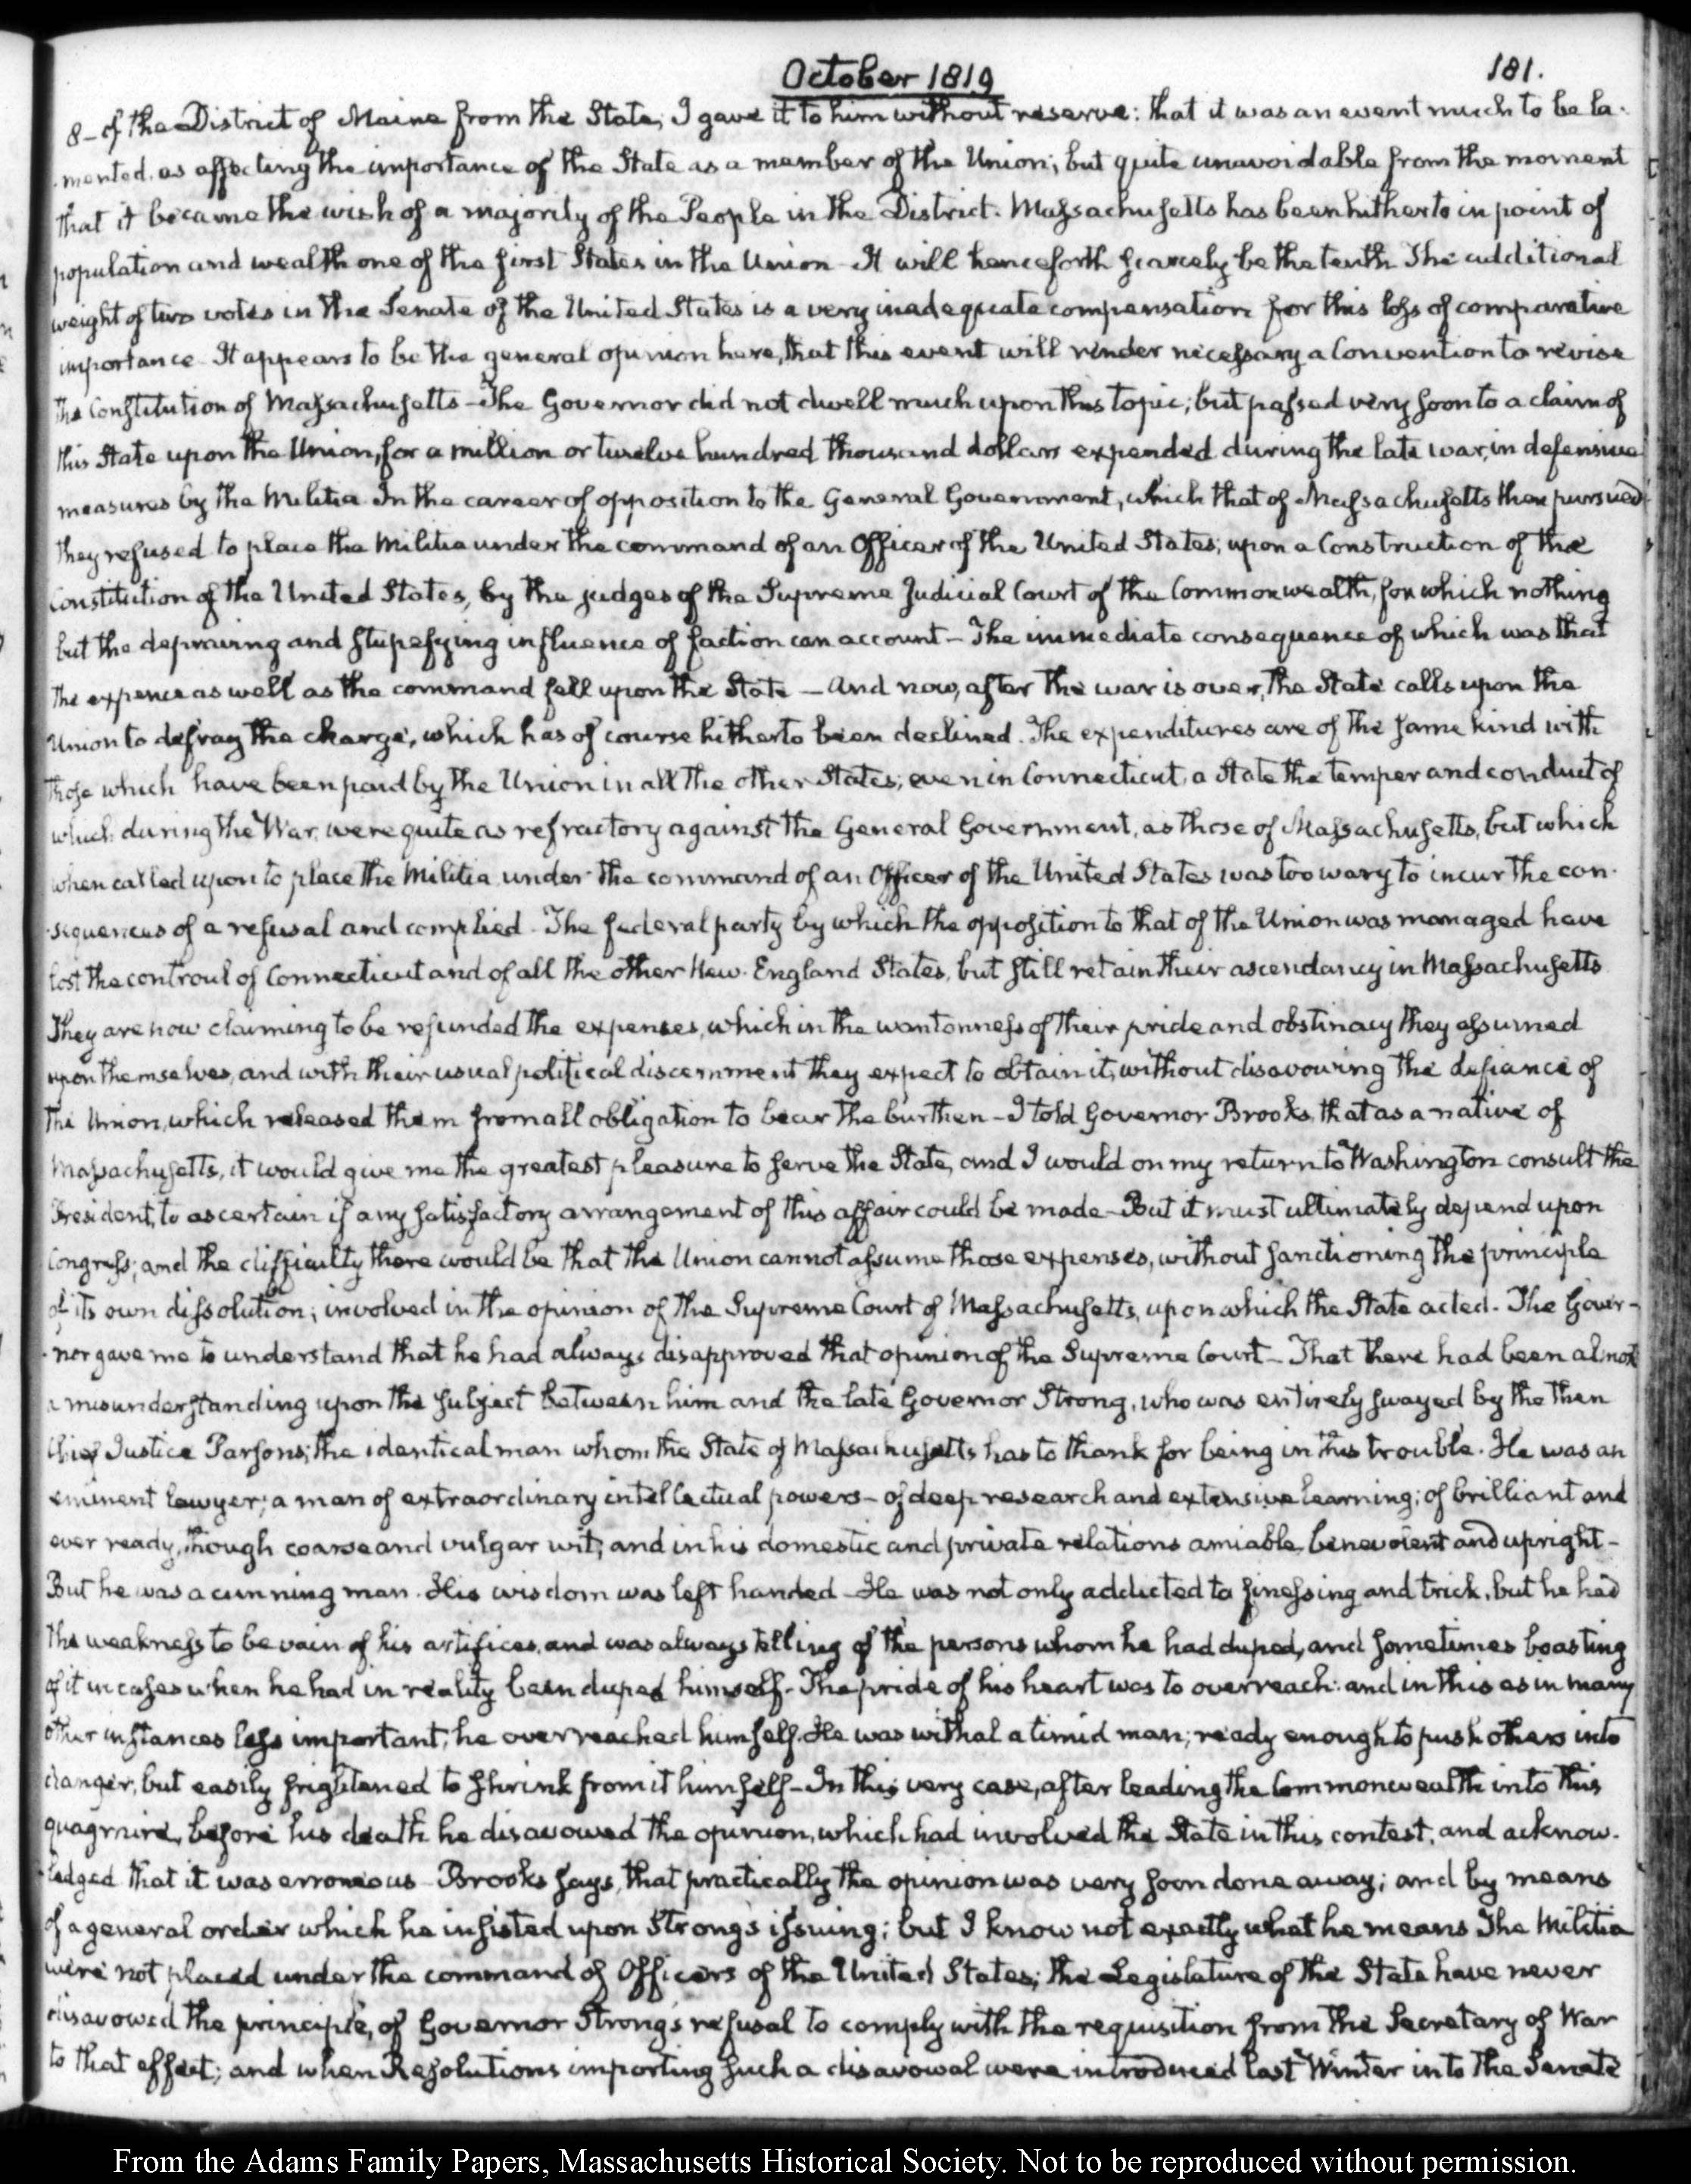 October 1819
181.
8 - of the District of Maine from the State, I gave it to him without reserve: that it was an event much to be la-
-mented, as affecting the importance of the State as a member of the Union; but quite unavoidable from the moment
that it became the wish of a majority of the People in the District. Massachusetts has been hitherto in point of
population and wealth one of the first States in the Union - It will henceforth scarcely be the tenth The additional
weight of two votes in the Senate of the United States is a very inadequate compensation for this loss of comparative
importance - It appears to be the general opinion here, that this event will render necessary a Convention to revise
the Constitution of Massachusetts - The Governor did not dwell much upon this topic; but passed very soon to a claim of
this State upon the Union, for a million or twelve hundred thousand dollars expended during the late war, in defensive
measures by the Militia - In the career of opposition to the General Government, which that of Massachusetts then pursued
they refused to place the Militia under the command of an Officer of the United States; upon a Construction of the
Constitution of the United States, by the judges of the Supreme Judicial Court of the Commonwealth, for which nothing
but the depraving and stupefying influence of faction can account - The immediate consequence of which was that
the expence as well as the command fell upon the State - And now, after the war is over, the State calls upon the
Union to defray the charge, which has of course hitherto been declined. The expenditures are of the same kind with
those which have been paid by the Union in all the other States; even in Connecticut, a State the temper and conduct of
which during the War, were quite as refractory against the General Government, as those of Massachusetts, but which
when called upon to place the Militia under the command of an Officer of the United States was too wary to incur the con-
-sequences of a refusal and complied - The federal party by which the opposition to that of the Union was managed have
lost the controul of Connecticut and of all the other New-England States, but still retain their ascendancy in Massachusetts
They are now claiming to be refunded the expenses, which in the wantonness of their pride and obstinacy they assumed
upon themselves, and with their usual political discernment they expect to obtain it, without disavowing the defiance of
the Union, which released them from all obligation to bear the burthen - I told Governor Brooks, that as a native of
Massachusetts, it would give me the greatest pleasure to serve the State, and I would on my return to Washington consult the
President, to ascertain if any satisfactory arrangement of this affair could be made - But it must ultimately depend upon
Congress; and the difficulty there would be that the Union cannot assume those expenses, without sanctioning the principle
of its own dissolution; involved in the opinion of the Supreme Court of Massachusetts, upon which the State acted - The Gover-
-nor gave me to understand that he had always disapproved that opinion of the Supreme Court - That there had been almost
a misunderstanding upon the subject between him and the late Governor Strong, who was entirely swayed by the then
Chief Justice Parsons; the identical man whom the State of Massachusetts has to thank for being in this trouble. He was an
eminent lawyer; a man of extraordinary intellectual powers - of deep research and extensive learning; of brilliant and
ever ready, though coarse and vulgar wit; and in his domestic and private relations amiable, benevolent and upright -
But he was a cunning man. His wisdom was left handed - He was not only addicted to finessing and trick, but he had
the weakness to be vain of his artifices, and was always telling of the persons whom he had duped, and sometimes boasting
of it in cases when he had in reality been duped himself - The pride of his heart was to overreach: and in this as in many
other instances less important, he overreached himself. He was withal a timid man; ready enough to push others into
danger, but easily frightened to shrink from it himself - In this very case, after leading the Commonwealth into this
quagmire, before his death he disavowed the opinion, which had involved the State in this contest, and acknow-
-ledged that it was erroneous - Brooks says, that practically the opinion was very soon done away; and by means
of a general order which he insisted upon Strong's issuing; but I know not exactly what he means The Militia
were not placed under the command of Officers of the United States; the Legislature of the State have never
disavowed the principle, of Governor Strong's refusal to comply with the requisition from the Secretary of War
to that effect; and when Resolutions importing such a disavowal were introduced last Winter into the Senate
From the Adams Family Papers, Massachusetts Historical Society. Not to be reproduced without permission.